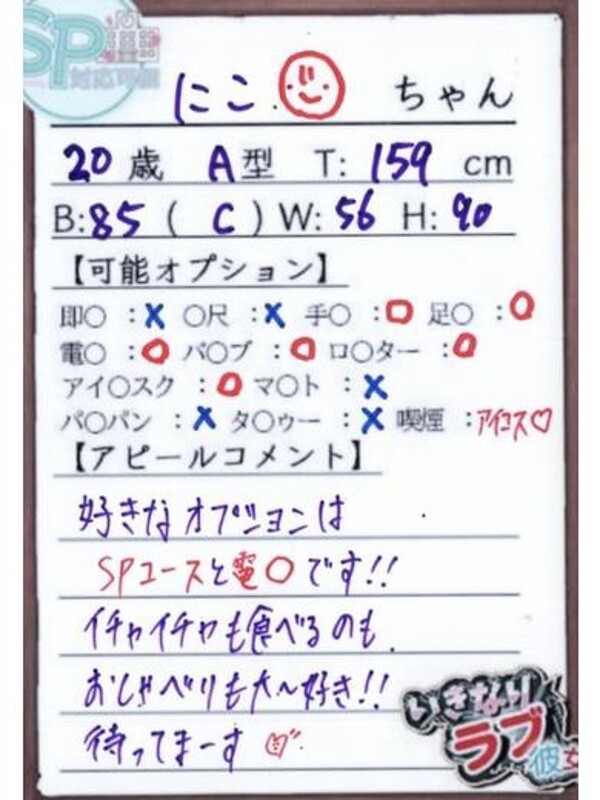 SP
対応可能
にこ ちゃん
20歳 A型 T: 159 cm
B:85 ( C ) W: 56 H: 90
【可能オプション】
即〇 :× 〇尺 :× 手〇 :〇 足〇 :〇
電〇 :〇 バ〇ブ :〇 ロ〇ター :〇
アイ〇スク :〇 マ〇ト :×
パ〇パン :× タ〇ゥー :× 喫煙 :アイコス♡
【アピールコメント】
好きなオプションは
SPコースと電〇です!!
イチャイチャも食べるのも
おしゃべりも大〜好き!!
待ってまーす
いきなり
ラブ
彼女